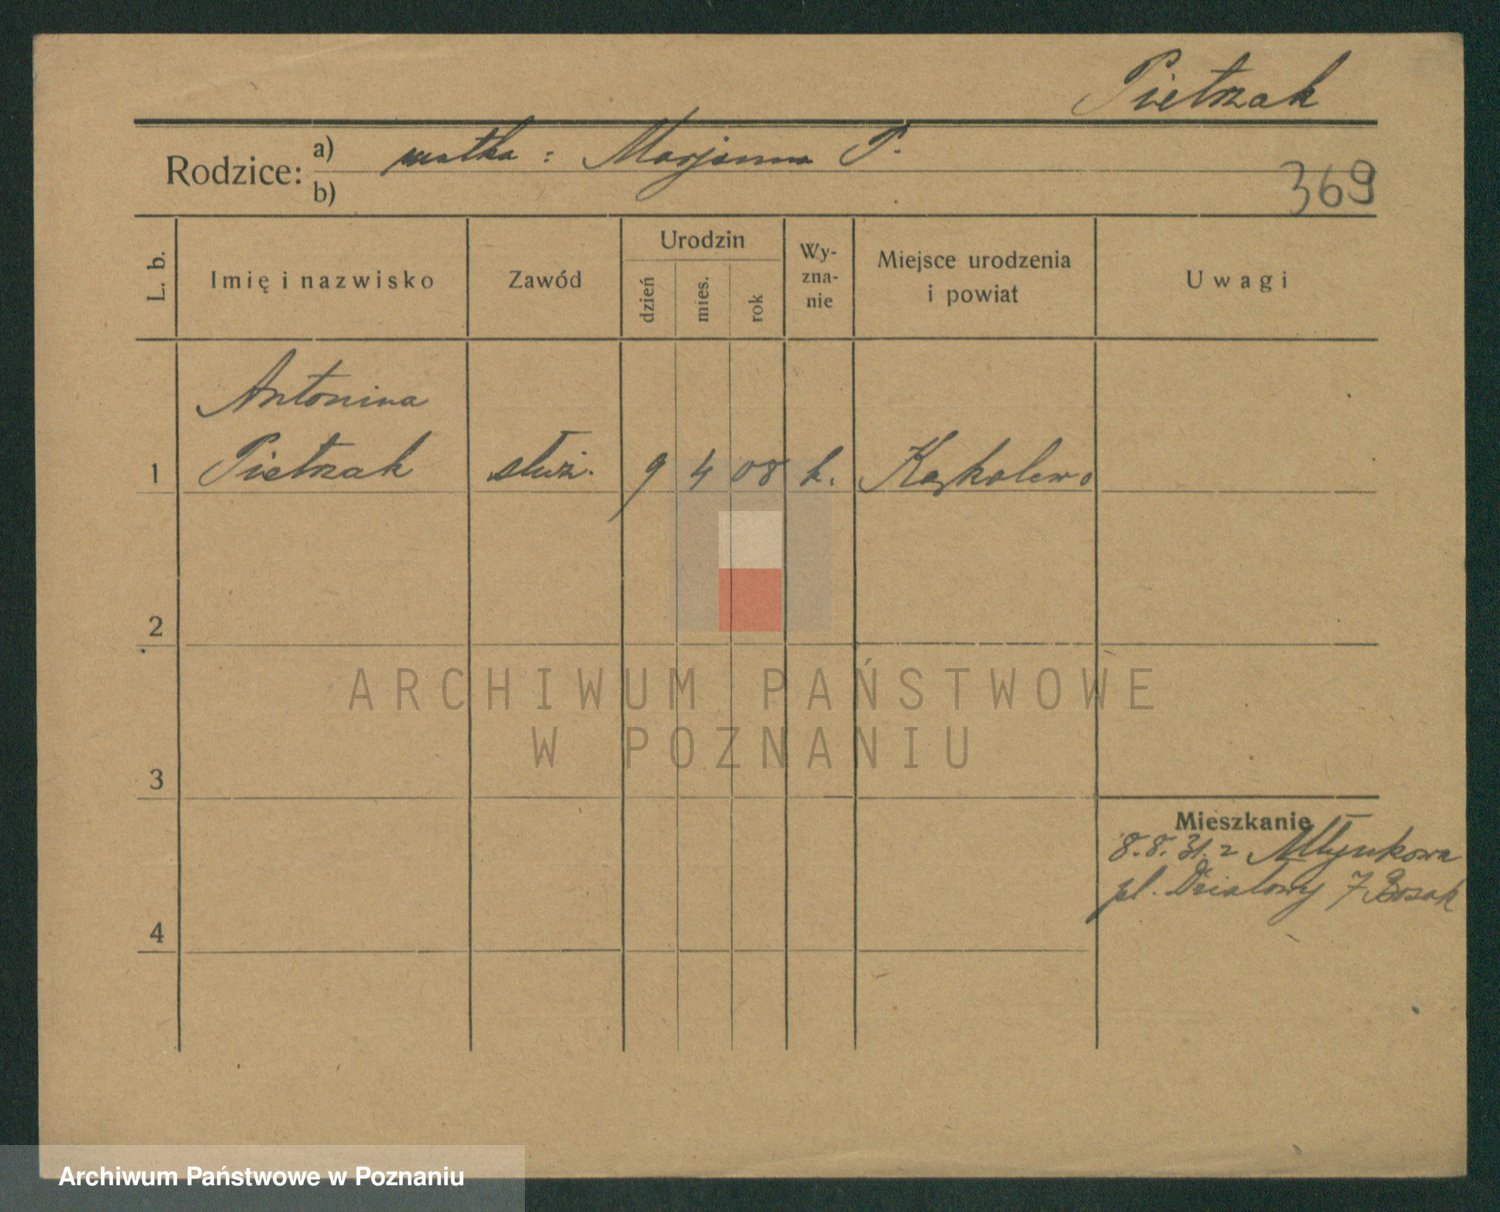 Pietrzak
Rodzice: a) matka: Marjanna P.
b)
369
L. b.
Imię i nazwisko
Zawód
Urodzin
dzień
mies.
rok
Wy-
zna-
nie
Miejsce urodzenia
i powiat
Uwagi
Antonina
1 Pietrzak służ. 9 4 08 k. Kąkolewo
2
3
4
Mieszkanie
8.8.31. z Młynkowa
pl. Działowy 7 Bozak
ARCHIWUM PAŃSTWOWE
W POZNANIU
Archiwum Państwowe w Poznaniu